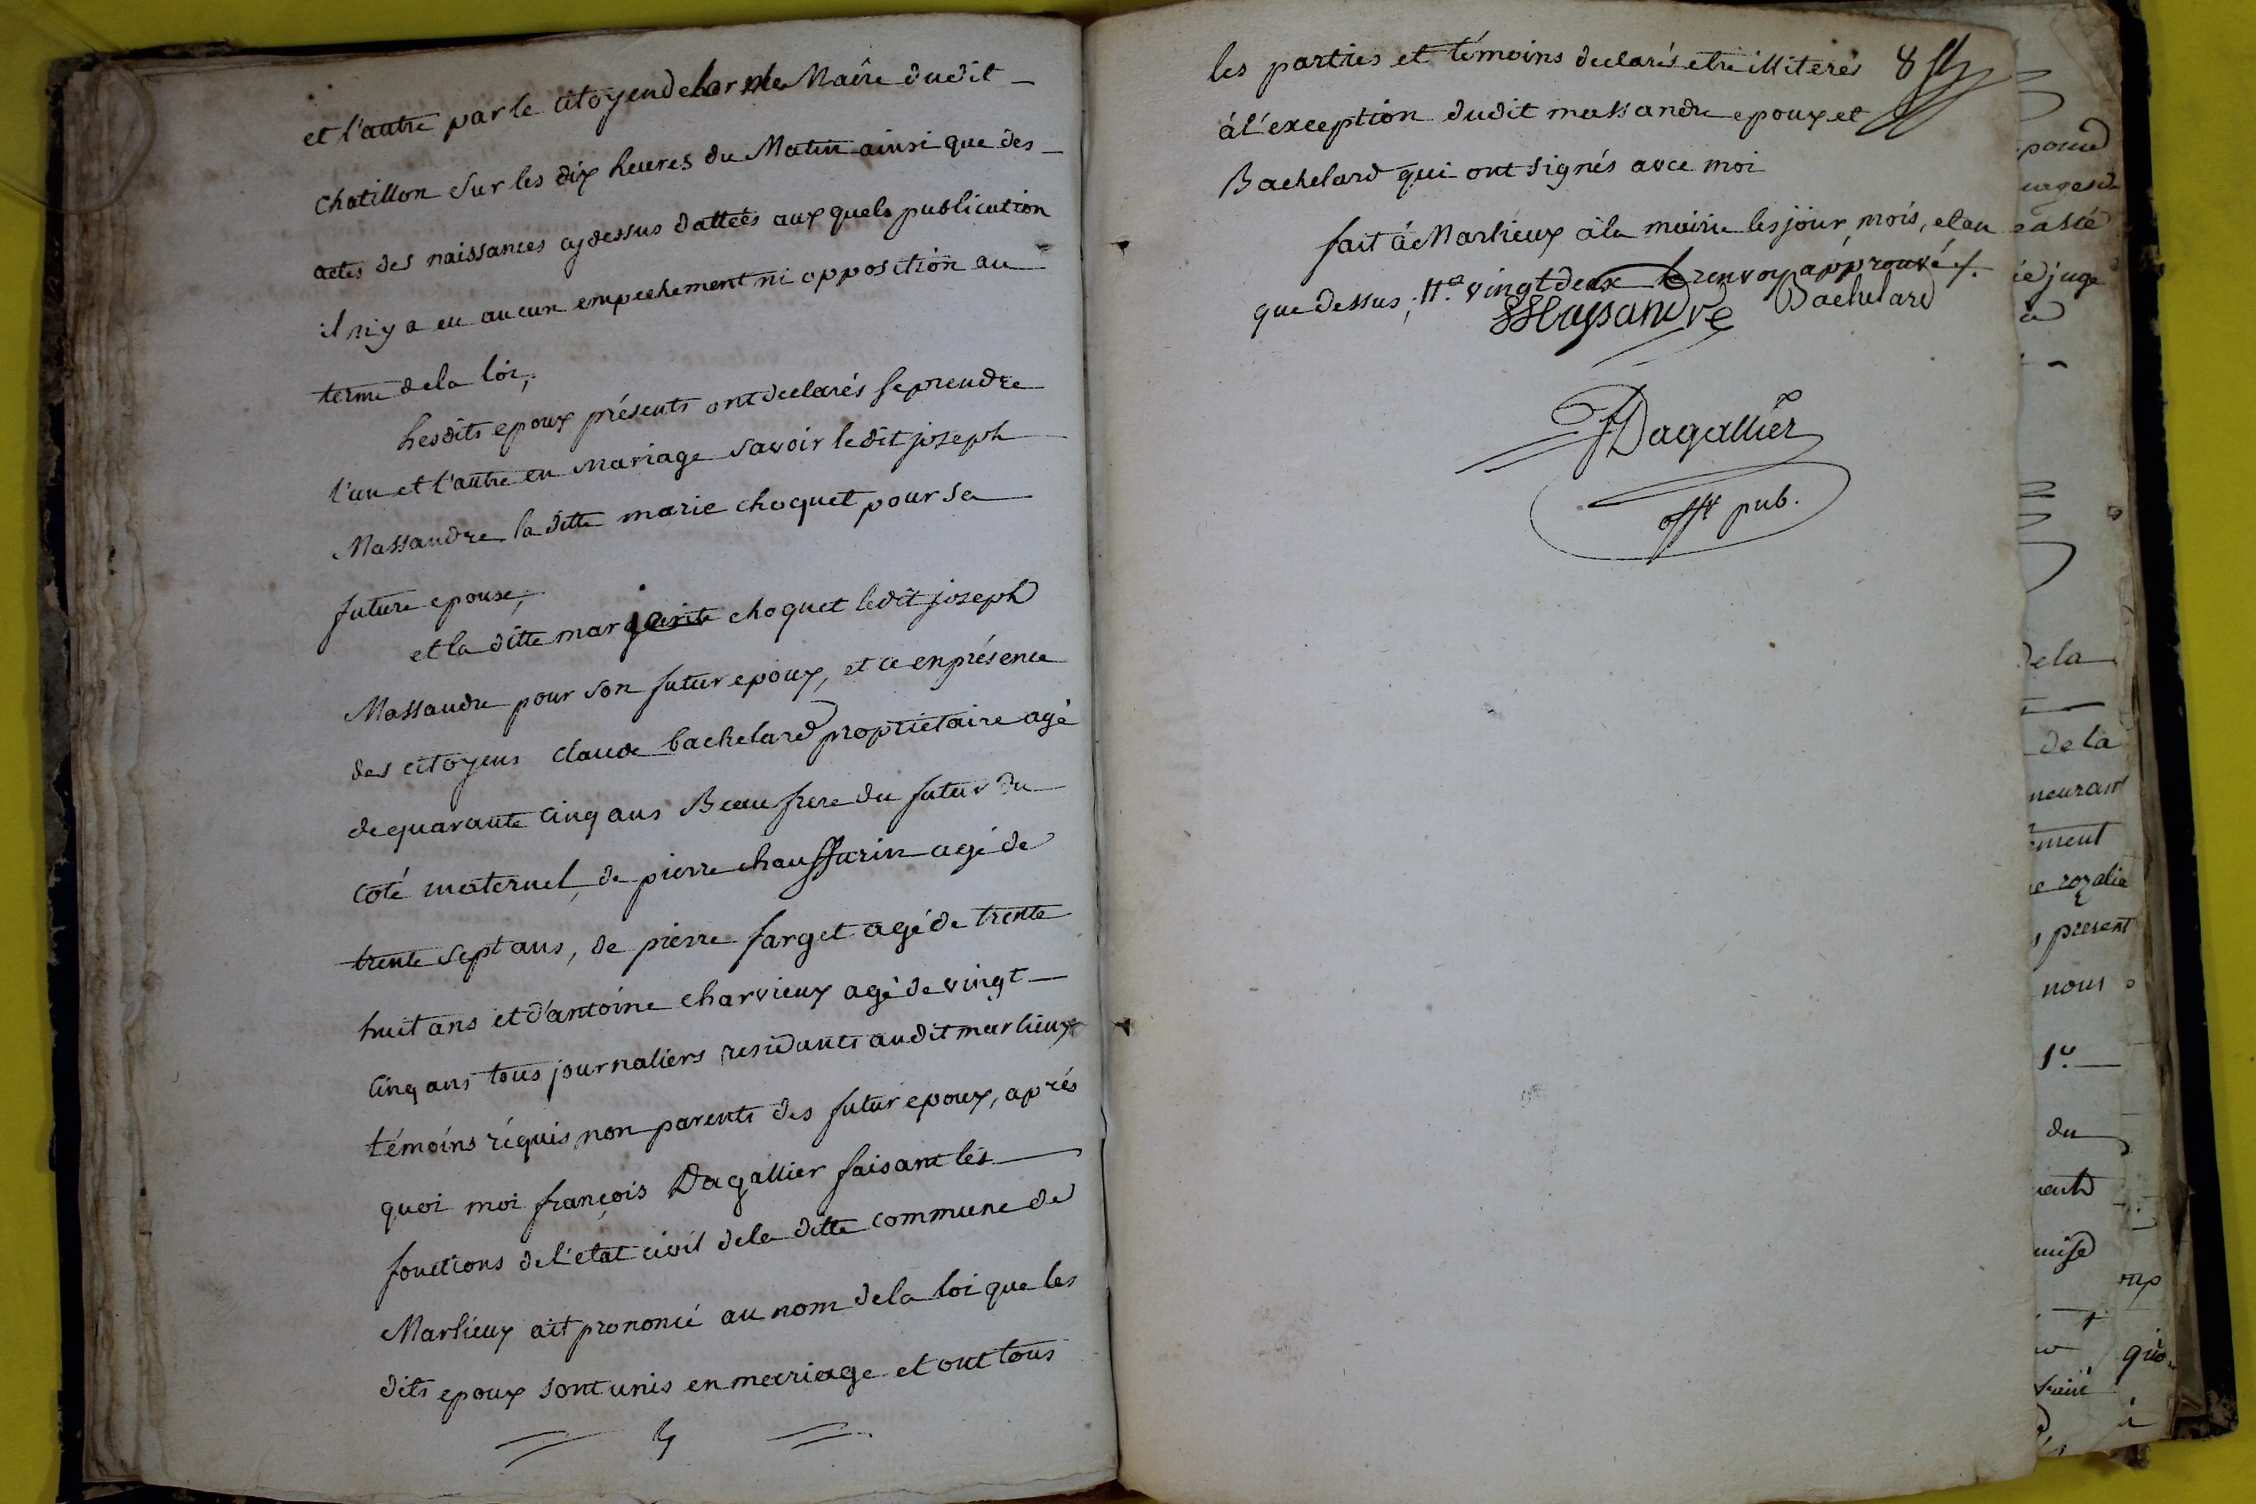 et l'autre par le citoyen delorme Maire dudit
chatillon sur les dix heures du Matin ainsi que des
actes des naissances cydessus dattées auxquels publication
il n'y a eu aucun empechement ni opposition au
terme de la loi,
Lesdits epoux présents ont declarés se prendre
l'un et l'autre en Mariage savoir ledit joseph
Massandre la ditte marie choquet pour sa
future epouse,
et la ditte marguerite choquet ledit joseph
Massandre pour son futur epoux, et ce en présence
des citoyens claude bachelard proprietaire agé
de quarante cinq ans Beau frere du futur du
coté maternel, de pierre chauffurin agé de
trente sept ans, de pierre farget agé de trente
huit ans et d'antoine charvieux agé de vingt
cinq ans tous journaliers residants audit marlieux
témoins réquis non parents des futur epoux, aprés
quoi moi françois Dagallier faisant les
fonctions de l'etat civil de la ditte commune de
Marlieux ait prononcé au nom de la loi que les
dits epoux sont unis en mariage et ont tous
les parties et témoins declarés etre illiterés 8
à l'exception dudit massandre epoux et
Bachelard qui ont signés avec moi
fait à Marlieux à la mairie les jour, mois, et an
que dessus, vingt deux le renvoy approuvé
Massandre Bachelard
Dagallier
offr pub.
pour
juge
de la
de la
ment
rozalie
present
nous
du